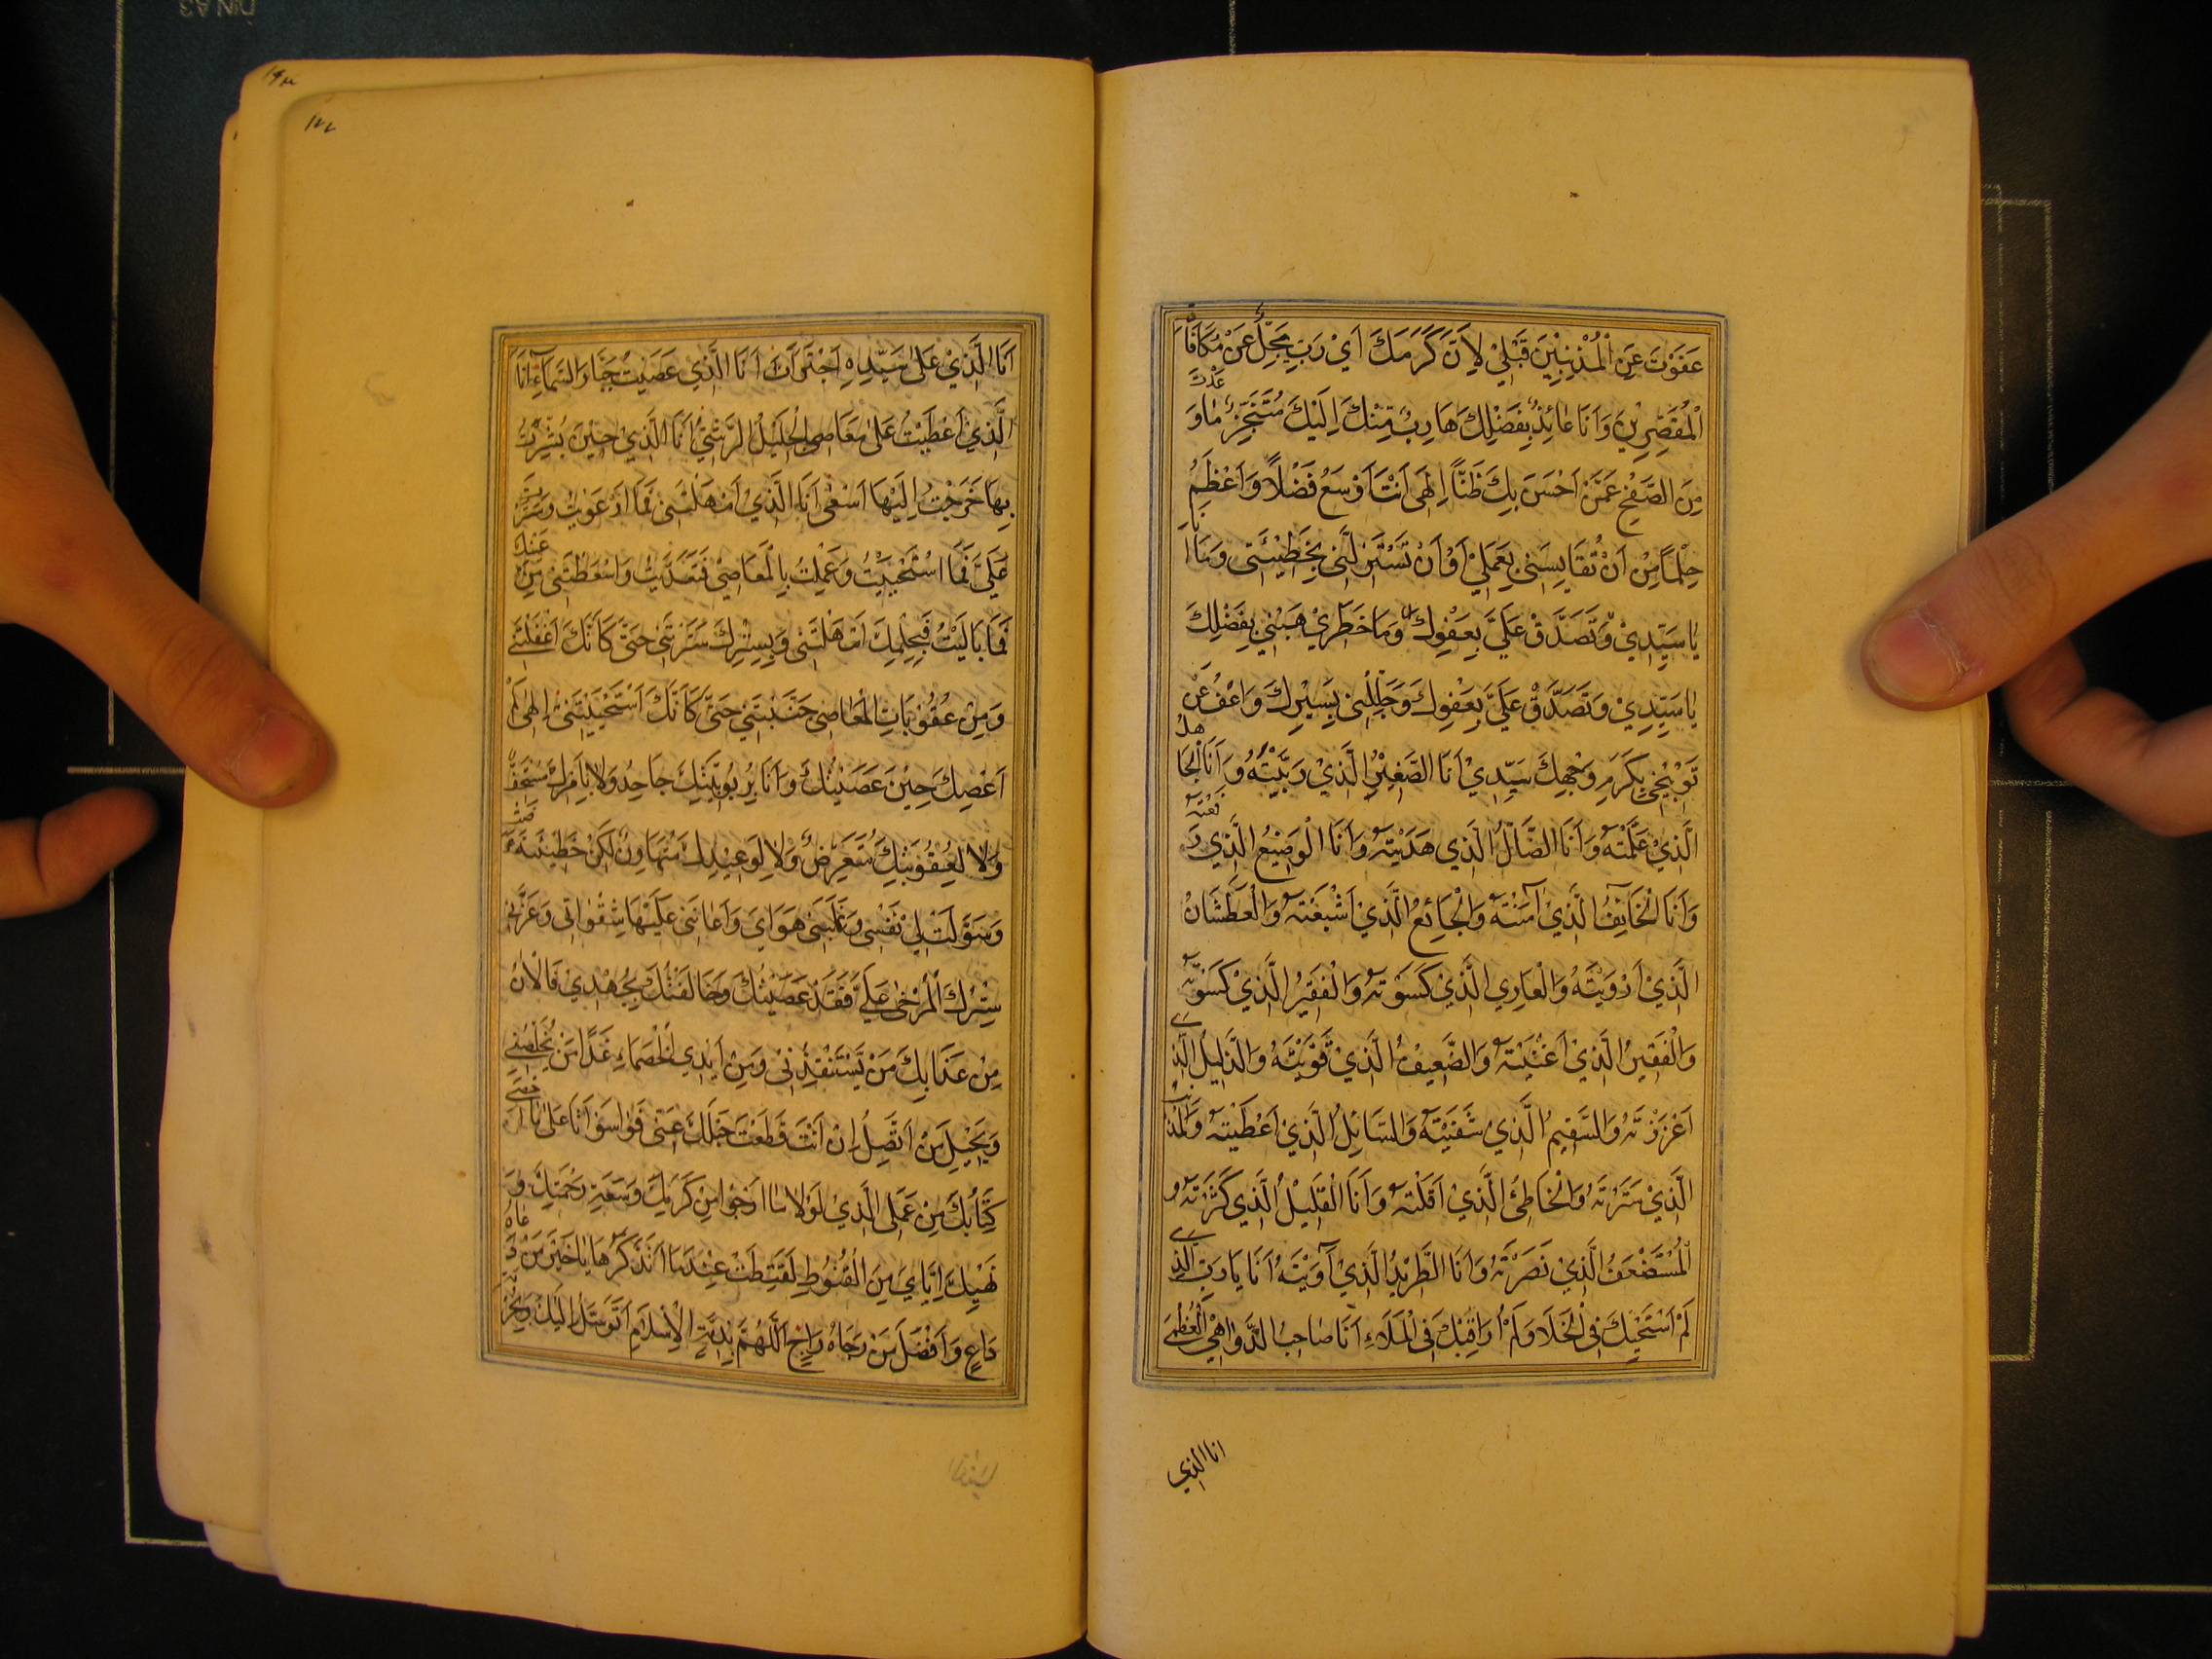 عَفَوْتَ عَنِ الْمُذْنِبِيْنَ قَبْلِيْ لِاَنَّ كَرَمَكَ اَيْ رَبِّ يَجِلُّ عَنْ مُكَافَاةِ
الْمُقَصِّرِيْنَ وَاَنَا عَائِذٌ بِفَضْلِكَ هَارِبٌ مِنْكَ اِلَيْكَ مُتَنَجِّزٌ مَا وَعَدْتَ
مِنَ الصَّفْحِ عَمَّنْ اَحْسَنَ بِكَ ظَنًّا اِلٰهِى اَنْتَ اَوْسَعُ فَضْلًا وَاَعْظَمُ
حِلْمًا مِنْ اَنْ تُقَايِسَنِى بِعَمَلِيْ اَوْ اَنْ تَسْتَزِلَّنِى بِخَطِيْئَتِى وَمَا اَنَا
يَا سَيِّدِيْ وَتَصَدَّقْ عَلَيَّ بِعَفْوِكَ وَمَا خَطَرِيْ هَبْنِيْ بِفَضْلِكَ
يَا سَيِّدِيْ وَتَصَدَّقْ عَلَيَّ بِعَفْوِكَ وَجَلِّلْنِى بِسِتْرِكَ وَاعْفُ عَنْ
تَوْبِيْخِى بِكَرَمِ وَجْهِكَ سَيِّدِيْ اَنَا الصَّغِيْرُ الَّذِيْ رَبَّيْتَهُ وَاَنَا الْجَاهِلُ
الَّذِيْ عَلَّمْتَهُ وَاَنَا الضَّالُّ الَّذِي هَدَيْتَهُ وَاَنَا الْوَضِيْعُ الَّذِي رَفَعْتَهُ
وَاَنَا الْخَائِفُ الَّذِيْ آمَنْتَهُ وَالْجَائِعُ الَّذِيْ اَشْبَعْتَهُ وَالْعَطْشَانُ
الَّذِيْ اَرْوَيْتَهُ وَالْعَارِي الَّذِيْ كَسَوْتَهُ وَالْفَقِيْرُ الَّذِيْ كَسَوْتَهُ
وَالْفَقِيْرُ الَّذِيْ اَغْنَيْتَهُ وَالضَّعِيْفُ الَّذِيْ قَوَّيْتَهُ وَالذَّلِيْلُ الَّذِي
اَعْزَزْتَهُ وَالسَّقِيْمُ الَّذِي شَفَيْتَهُ وَالسَّائِلُ الَّذِيْ اَعْطَيْتَهُ وَالْمُذْنِبُ
الَّذِيْ سَتَرْتَهُ وَالْخَاطِئُ الَّذِيْ اَقَلْتَهُ وَاَنَا الْقَلِيْلُ الَّذِي كَثَّرْتَهُ وَ
الْمُسْتَضْعَفُ الَّذِيْ نَصَرْتَهُ وَاَنَا الطَّرِيْدُ الَّذِيْ آوَيْتَهُ اَنَا يَا رَبِّ الَّذِي
لَمْ اَسْتَحْيِكَ فِى الْخَلَاءِ وَلَمْ اُرَاقِبْكَ فِى الْمَلَاءِ اَنَا صَاحِبُ الدَّوَاهِيْ الْعُظْمٰى
انا الذي
اَنَا الَّذِيْ عَلٰى سَيِّدِهٖ اجْتَرَاَ اَنَا الَّذِي عَصَيْتُ جَبَّارَ السَّمَاءِ اَنَا
الَّذِيْ اَعْطَيْتُ عَلٰى مَعَاصِى الْجَلِيْلِ الرُّشٰى اَنَا الَّذِيْ حِيْنَ بُشِّرْتُ
بِهَا خَرَجْتُ اِلَيْهَا اَسْعٰى اَنَا الَّذِيْ اَمْهَلْتَنِى فَمَا ارْعَوَيْتُ وَسَتَرْتَ
عَلَيَّ فَمَا اسْتَحْيَيْتُ وَعَمِلْتُ بِالْمَعَاصِيْ فَتَعَدَّيْتُ وَاَسْقَطْتَنِى مِنْ عَيْنِكَ
فَمَا بَالَيْتُ فَبِحِلْمِكَ اَمْهَلْتَنِى وَبِسِتْرِكَ سَتَرْتَنِى حَتّٰى كَاَنَّكَ اَغْفَلْتَنِى
وَمِنْ عُقُوْبَاتِ الْمَعَاصِى جَنَّبْتَنِيْ حَتّٰى كَاَنَّكَ اسْتَحْيَيْتَنِيْ اِلٰهِى لَمْ
اَعْصِكَ حِيْنَ عَصَيْتُكَ وَاَنَا بِرُبُوْبِيَّتِكَ جَاحِدٌ وَلَا بِاَمْرِكَ مُسْتَخِفٌّ
وَلَا لِعُقُوْبَتِكَ مُتَعَرِّضٌ وَلَا لِوَعِيْدِكَ مُتَهَاوِنٌ لٰكِنْ خَطِيْئَةٌ عَرَضَتْ
وَسَوَّلَتْ لِيْ نَفْسِى وَغَلَبَنِى هَوَايَ وَاَعَانَنِى عَلَيْهَا شِقْوَاتِى وَغَرَّنِى
سِتْرُكَ الْمُرْخٰى عَلَيَّ فَقَدْ عَصَيْتُكَ وَخَالَفْتُكَ بِجُهْدِيْ فَالْاٰنَ
مِنْ عَذَابِكَ مَنْ يَسْتَنْقِذُنِى وَمِنْ اَيْدِي الْخُصَمَاءِ غَدًا مَنْ يُخَلِّصُنِى
وَبِحَبْلِ مَنْ اَتَّصِلُ اِنْ اَنْتَ قَطَعْتَ حَبْلَكَ عَنِّى فَوَا سَوْاَتَا عَلٰى مَا اَحْصٰى
كِتَابُكَ مِنْ عَمَلِى الَّذِيْ لَوْلَا مَا اَرْجُوْا مِنْ كَرَمِكَ وَسَعَةِ رَحْمَتِكَ وَ
نَهْيِكَ اِيَّايَ مِنَ الْقُنُوْطِ لَقَنَطْتُ عِنْدَ مَا اَتَذَكَّرُهَا يَا خَيْرَ مَنْ دَعَاهُ
دَاعٍ وَاَفْضَلَ مَنْ رَجَاهُ رَاجٍ اَللّٰهُمَّ بِذِمَّةِ الْاِسْلَامِ اَتَوَسَّلُ اِلَيْكَ